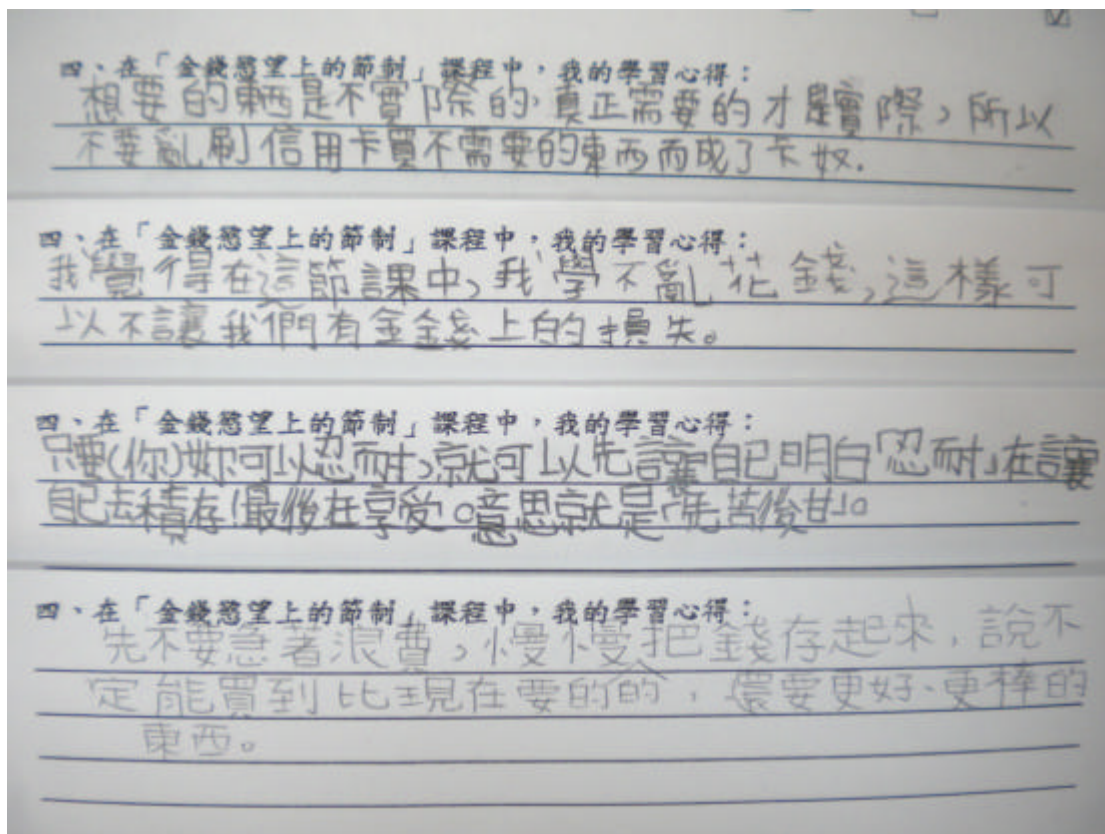 四、在「金錢慾望上的節制」課程中，我的學習心得：
想要的東西是不實際的，真正需要的才是實際，所以
不要亂刷信用卡買不需要的東西而成了卡奴.
四、在「金錢慾望上的節制」課程中，我的學習心得：
我覺得在這節課中，我學不亂花錢，這樣可
以不讓我們有金錢上的損失。
四、在「金錢慾望上的節制」課程中，我的學習心得：
只要(你)妳可以忍耐，就可以先讓自己明白「忍耐」在讓
自己去積存!最後在享受。意思就是「先苦後甘」。
四、在「金錢慾望上的節制」課程中，我的學習心得：
先不要急著浪費，慢慢把錢存起來，說不
定能買到比現在要的的，還要更好、更棒的
東西。